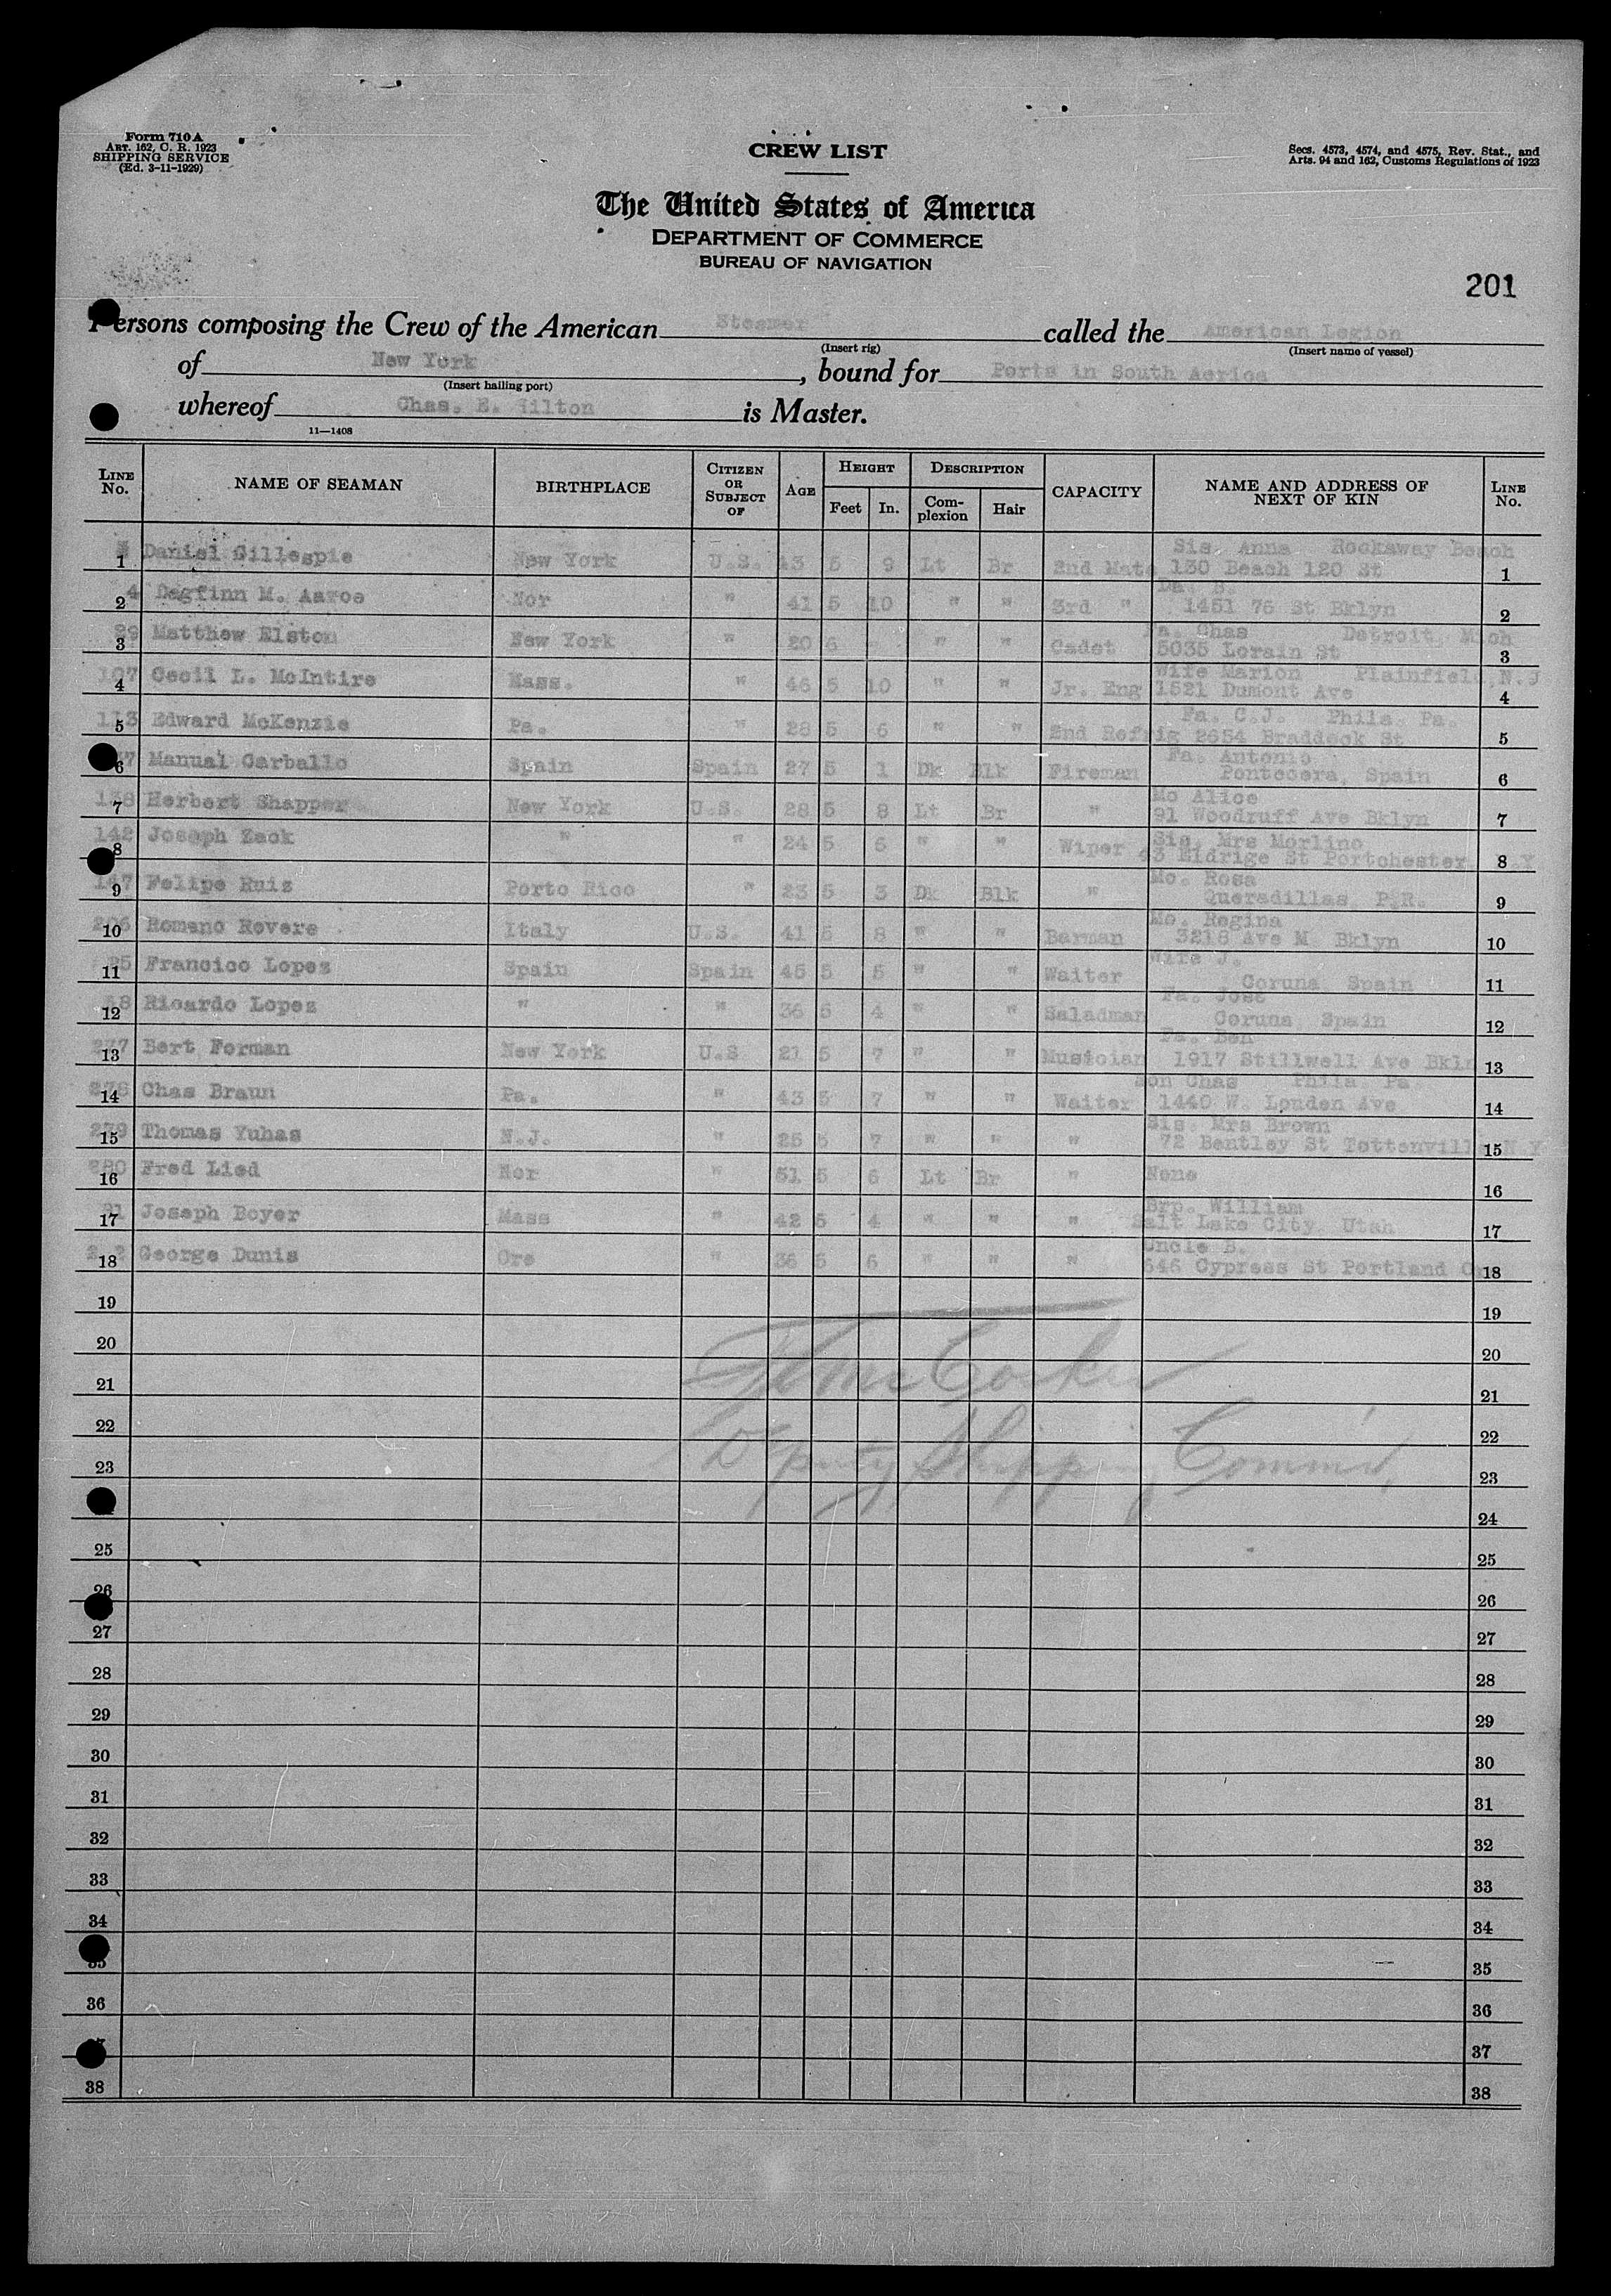 Form 710 A
ART. 162, C. R. 1923
SHIPPING SERVICE
(Ed. 3-11-1929)
CREW LIST
Secs. 4573, 4574, and 4575, Rev. Stat., and
Arts. 94 and 162, Customs Regulations of 1923
The United States of America
DEPARTMENT OF COMMERCE
BUREAU OF NAVIGATION
201
Persons composing the Crew of the American Steamer called the American Legion
(Insert rig) (Insert name of vessel)
of New York, bound for Ports in South Aerica
(Insert hailing port)
whereof Chas. E. Hilton is Master.
11—1408
LINE No. NAME OF SEAMAN BIRTHPLACE CITIZEN OR SUBJECT OF AGE HEIGHT Feet In. DESCRIPTION Complexion Hair CAPACITY NAME AND ADDRESS OF NEXT OF KIN LINE No.
Sis. Anna Rockaway Beach
1 3 Daniel Gillespie New York U.S. 43 5 9 Lt Br 2nd Mate 130 Beach 120 St 1
Da. B.
2 4 Dagfinn M. Aaroe Nor " 41 5 10 " " 3rd " 1451 76 St Bklyn 2
Fa. Chas Detroit Mich
3 29 Matthew Elston New York " 20 6 - " " Cadet 5035 Lorain St 3
Wife Marion Plainfield, N.J
4 107 Cecil L. McIntire Mass. " 46 5 10 " " Jr. Eng 1521 Dumont Ave 4
Fa. C.J. Phila. Pa.
5 113 Edward McKenzie Pa. " 28 5 6 " " 2nd Refrig 2654 Braddock St 5
Fa. Antonio
6 Manual Carballo Spain Spain 27 5 1 Dk Blk Fireman Pontecera, Spain 6
Mo Alice
7 138 Herbert Shapper New York U.S. 28 5 8 Lt Br " 91 Woodruff Ave Bklyn 7
Sis. Mrs Morlino
8 142 Joseph Zack " " 24 5 6 " " Wiper 43 Eldrige St Portchester N.Y 8
Mo. Rosa
9 147 Felipe Ruiz Porto Rico " 23 5 3 Dk Blk " Queradillas P.R. 9
Mo. Regina
10 206 Romano Rovere Italy U.S. 41 5 8 " " Barman 3218 Ave M Bklyn 10
Wife J.
11 Francico Lopez Spain Spain 45 5 5 " " Waiter Coruna Spain 11
Fa. Jose
12 Ricardo Lopez " " 36 5 4 " " Saladman Coruna Spain 12
Fa. Ben
13 277 Bert Forman New York U.S 21 5 7 " " Musician 1917 Stillwell Ave Bkln 13
Son Chas Phila Pa
14 278 Chas Braun Pa. " 43 5 7 " " Waiter 1440 W. Louden Ave 14
Sis. Mrs Brown
15 279 Thomas Yuhas N.J. " 25 5 7 " " " 72 Bentley St Tottenville N Y 15
16 280 Fred Lied Nor " 51 5 6 Lt Br " None 16
Bro. William
17 Joseph Boyer Mass " 42 5 4 " " " Salt Lake City, Utah 17
Uncle B.
18 George Dunis Ore " 36 5 6 " " " 646 Cypress St Portland Or 18
19 19
20 20
21 21
22 22
Deputy Shipping Comm'r.
23 23
24
25 25
26 26
27 27
28 28
29 29
30 30
31 31
32 32
33 33
34 34
35 35
36 36
37 37
38 38